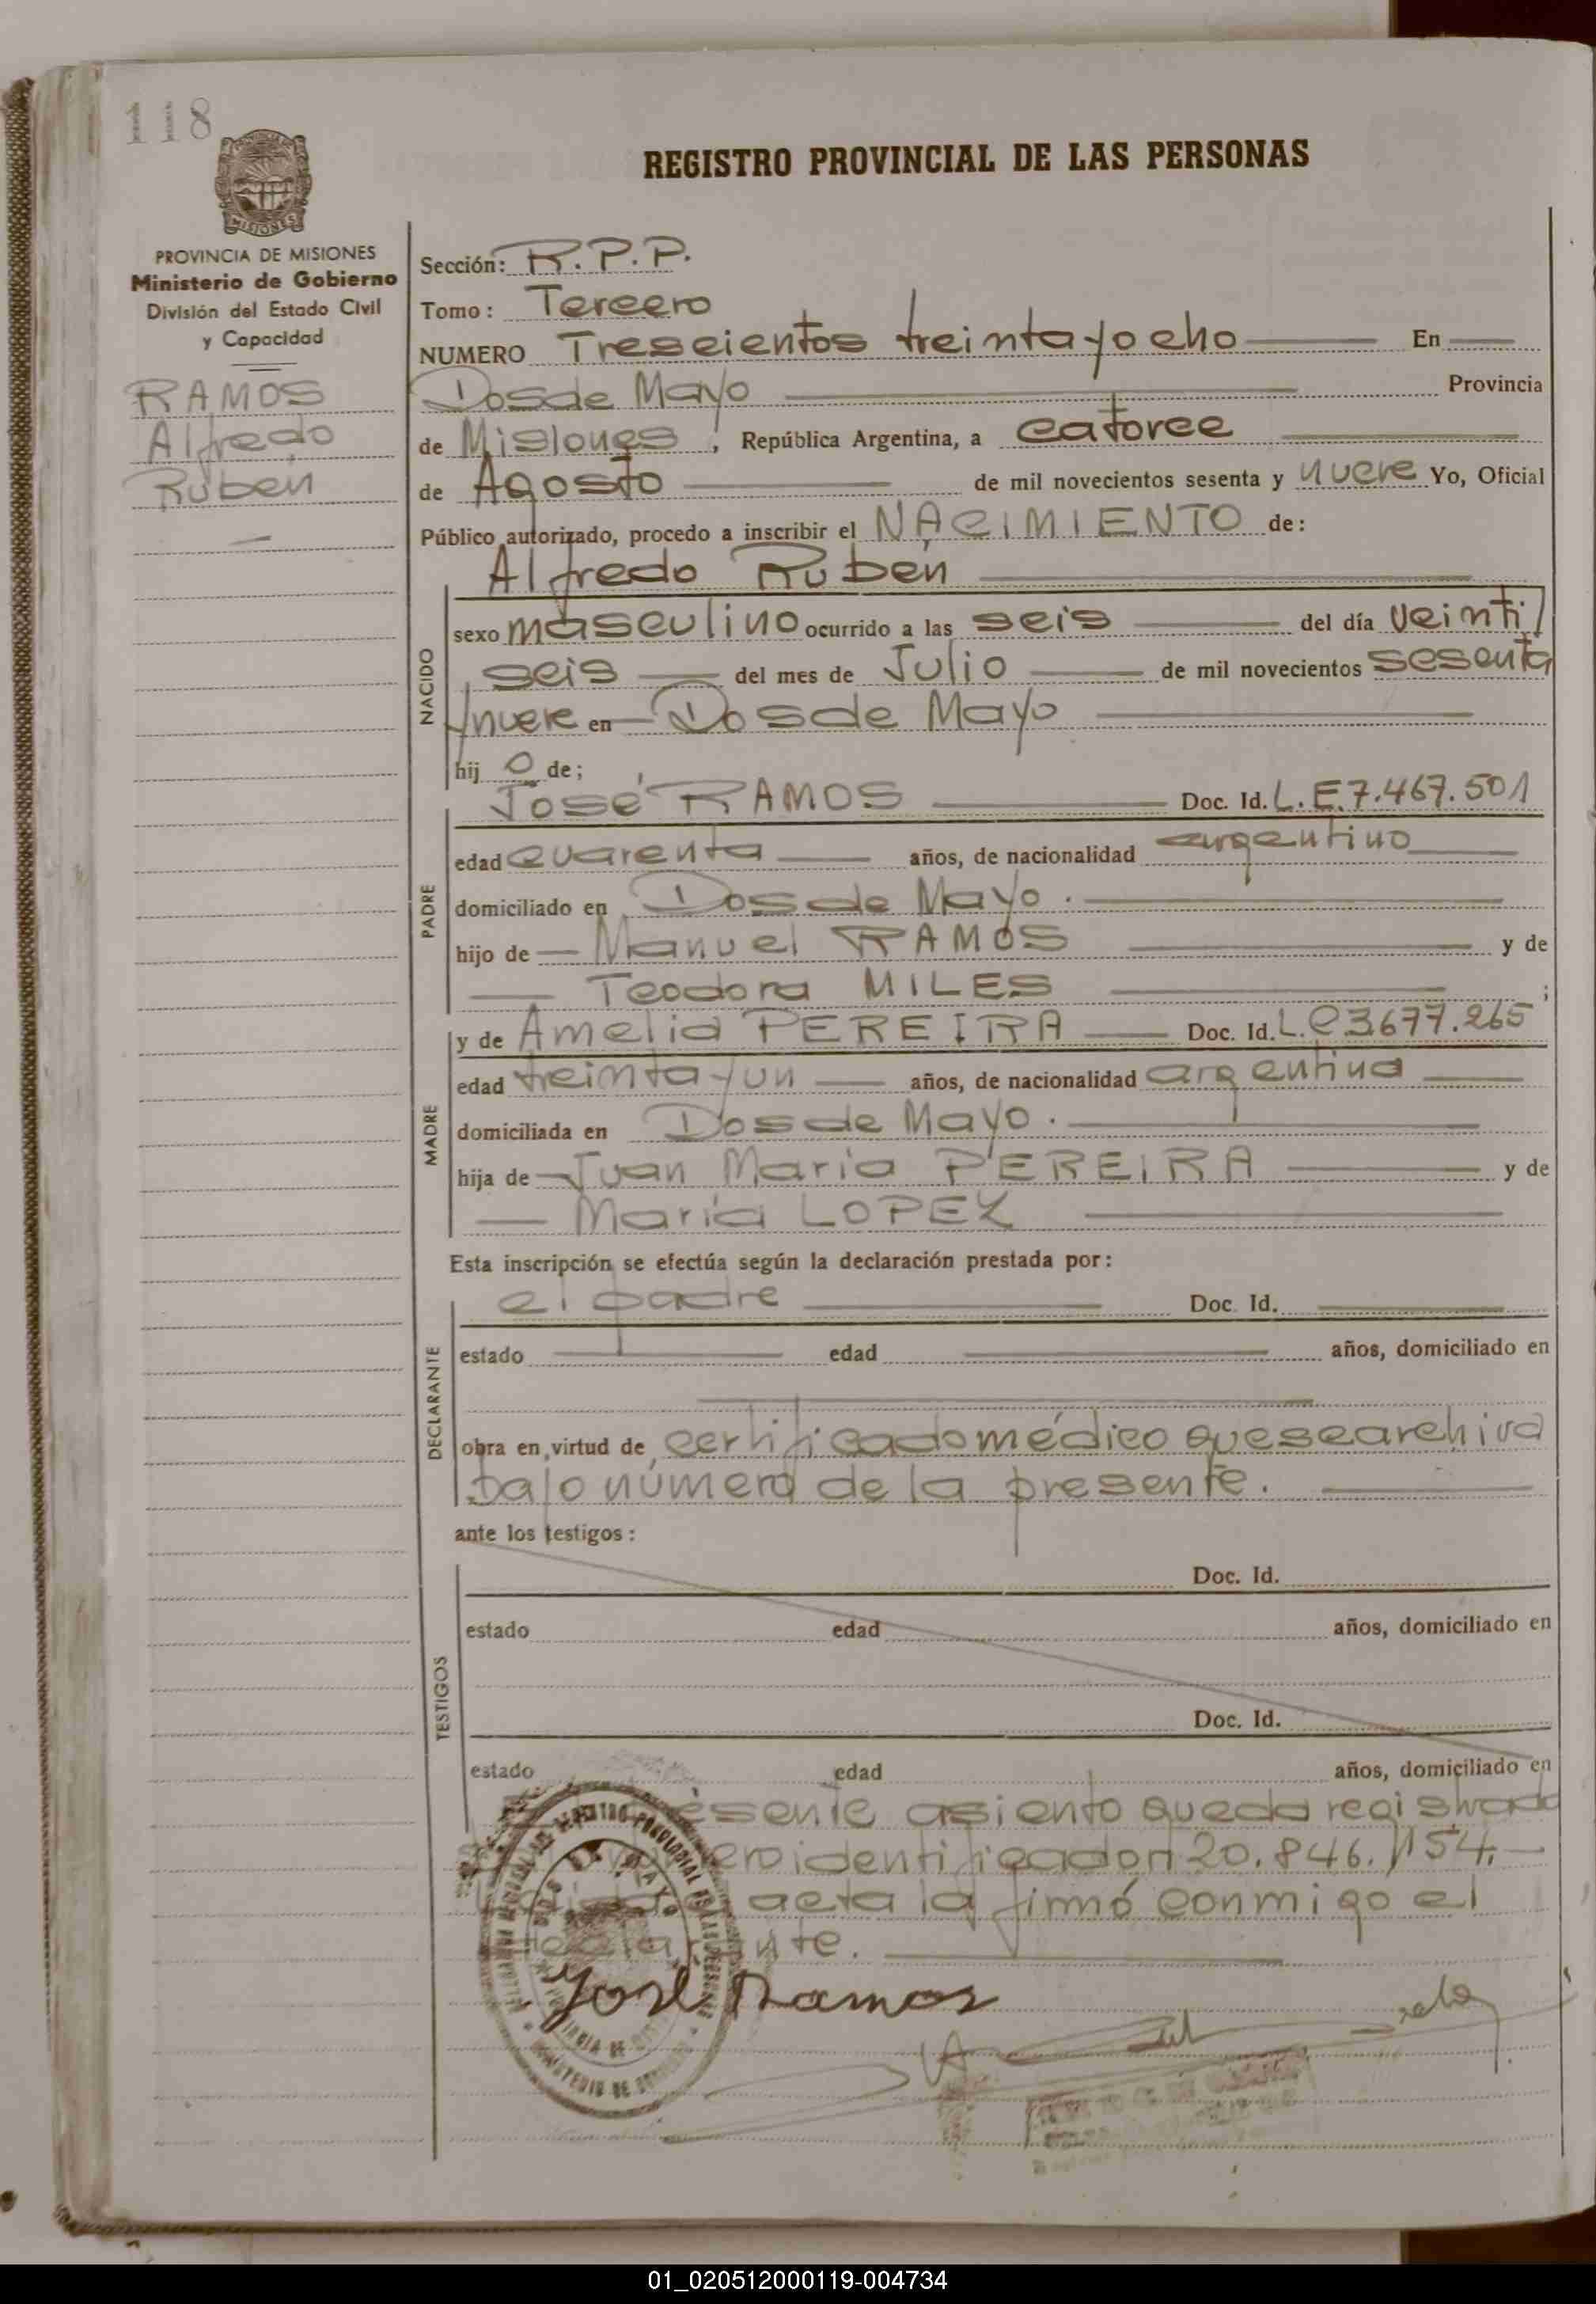 118
REGISTRO PROVINCIAL DE LAS PERSONAS
MISIONES
PROVINCIA DE MISIONES
Ministerio de Gobierno
División del Estado Civil
y Capacidad
RAMOS
Alfredo
Rubén
Sección: R.P.P.
Tomo: Tercero
NUMERO Trescientos treinta y ocho En
Dos de Mayo Provincia
de Misiones, República Argentina, a catorce
de Agosto de mil novecientos sesenta y nueve Yo, Oficial
Público autorizado, procedo a inscribir el NACIMIENTO de:
Alfredo Rubén
NACIDO
sexo masculino ocurrido a las seis del día veinti
seis del mes de Julio de mil novecientos sesenta
y nueve en Dos de Mayo
hij o de;
PADRE
José RAMOS Doc. Id. L.E.7.467.501
edad cuarenta años, de nacionalidad argentino
domiciliado en Dos de Mayo.
hijo de Manuel RAMOS y de
Teodora MILES ;
MADRE
y de Amelia PEREIRA Doc. Id. L.C.3.677.265
edad treinta y un años, de nacionalidad argentina
domiciliada en Dos de Mayo.
hija de Juan María PEREIRA y de
María LOPEZ
Esta inscripción se efectúa según la declaración prestada por:
DECLARANTE
el padre Doc. Id.
estado edad años, domiciliado en
obra en virtud de certificado médico que se archiva
bajo número de la presente.
ante los testigos:
TESTIGOS
Doc. Id.
estado edad años, domiciliado en
Doc. Id.
estado edad años, domiciliado en
presente asiento queda registrado
identificador 20.846.154.
acta la firmó conmigo el
declarante.
José Ramos
01_020512000119-004734